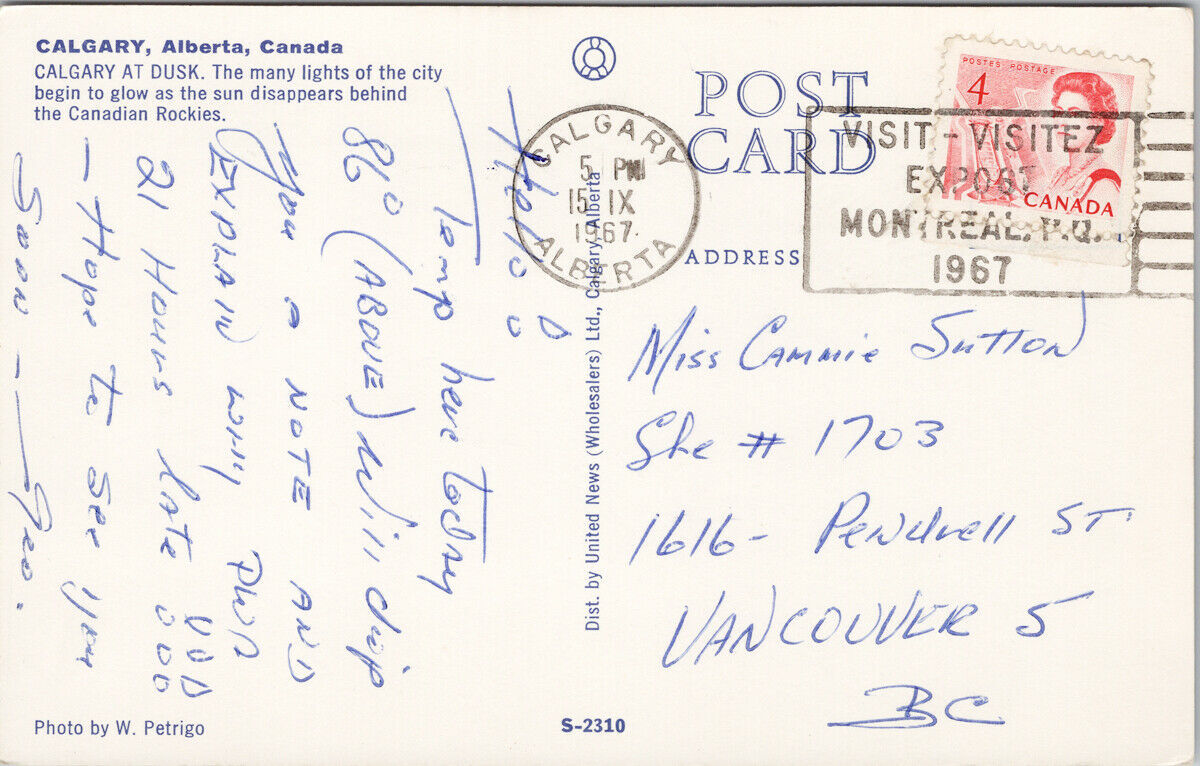 CALGARY, Alberta, Canada
CALGARY AT DUSK. The many lights of the city
begin to glow as the sun disappears behind
the Canadian Rockies.
POST
CARD
ADDRESS
CALGARY
5 PM
15 IX
1967
ALBERTA
VISIT - VISITEZ
EXPOST
MONTREAL, P.Q.
1967
POSTES POSTAGE
4
CANADA
Hello
Temp here today
86° (ABOVE) Will drop
you a NOTE AND
EXPLAIN why PWA
21 Hours late
- Hope to see you
Soon - Geo.
Miss Cammie Sutton
Ste # 1703
1616 - Pendrell ST
VANCOUVER 5
BC
Dist. by United News (Wholesalers) Ltd., Calgary, Alberta
Photo by W. Petrigo
S-2310